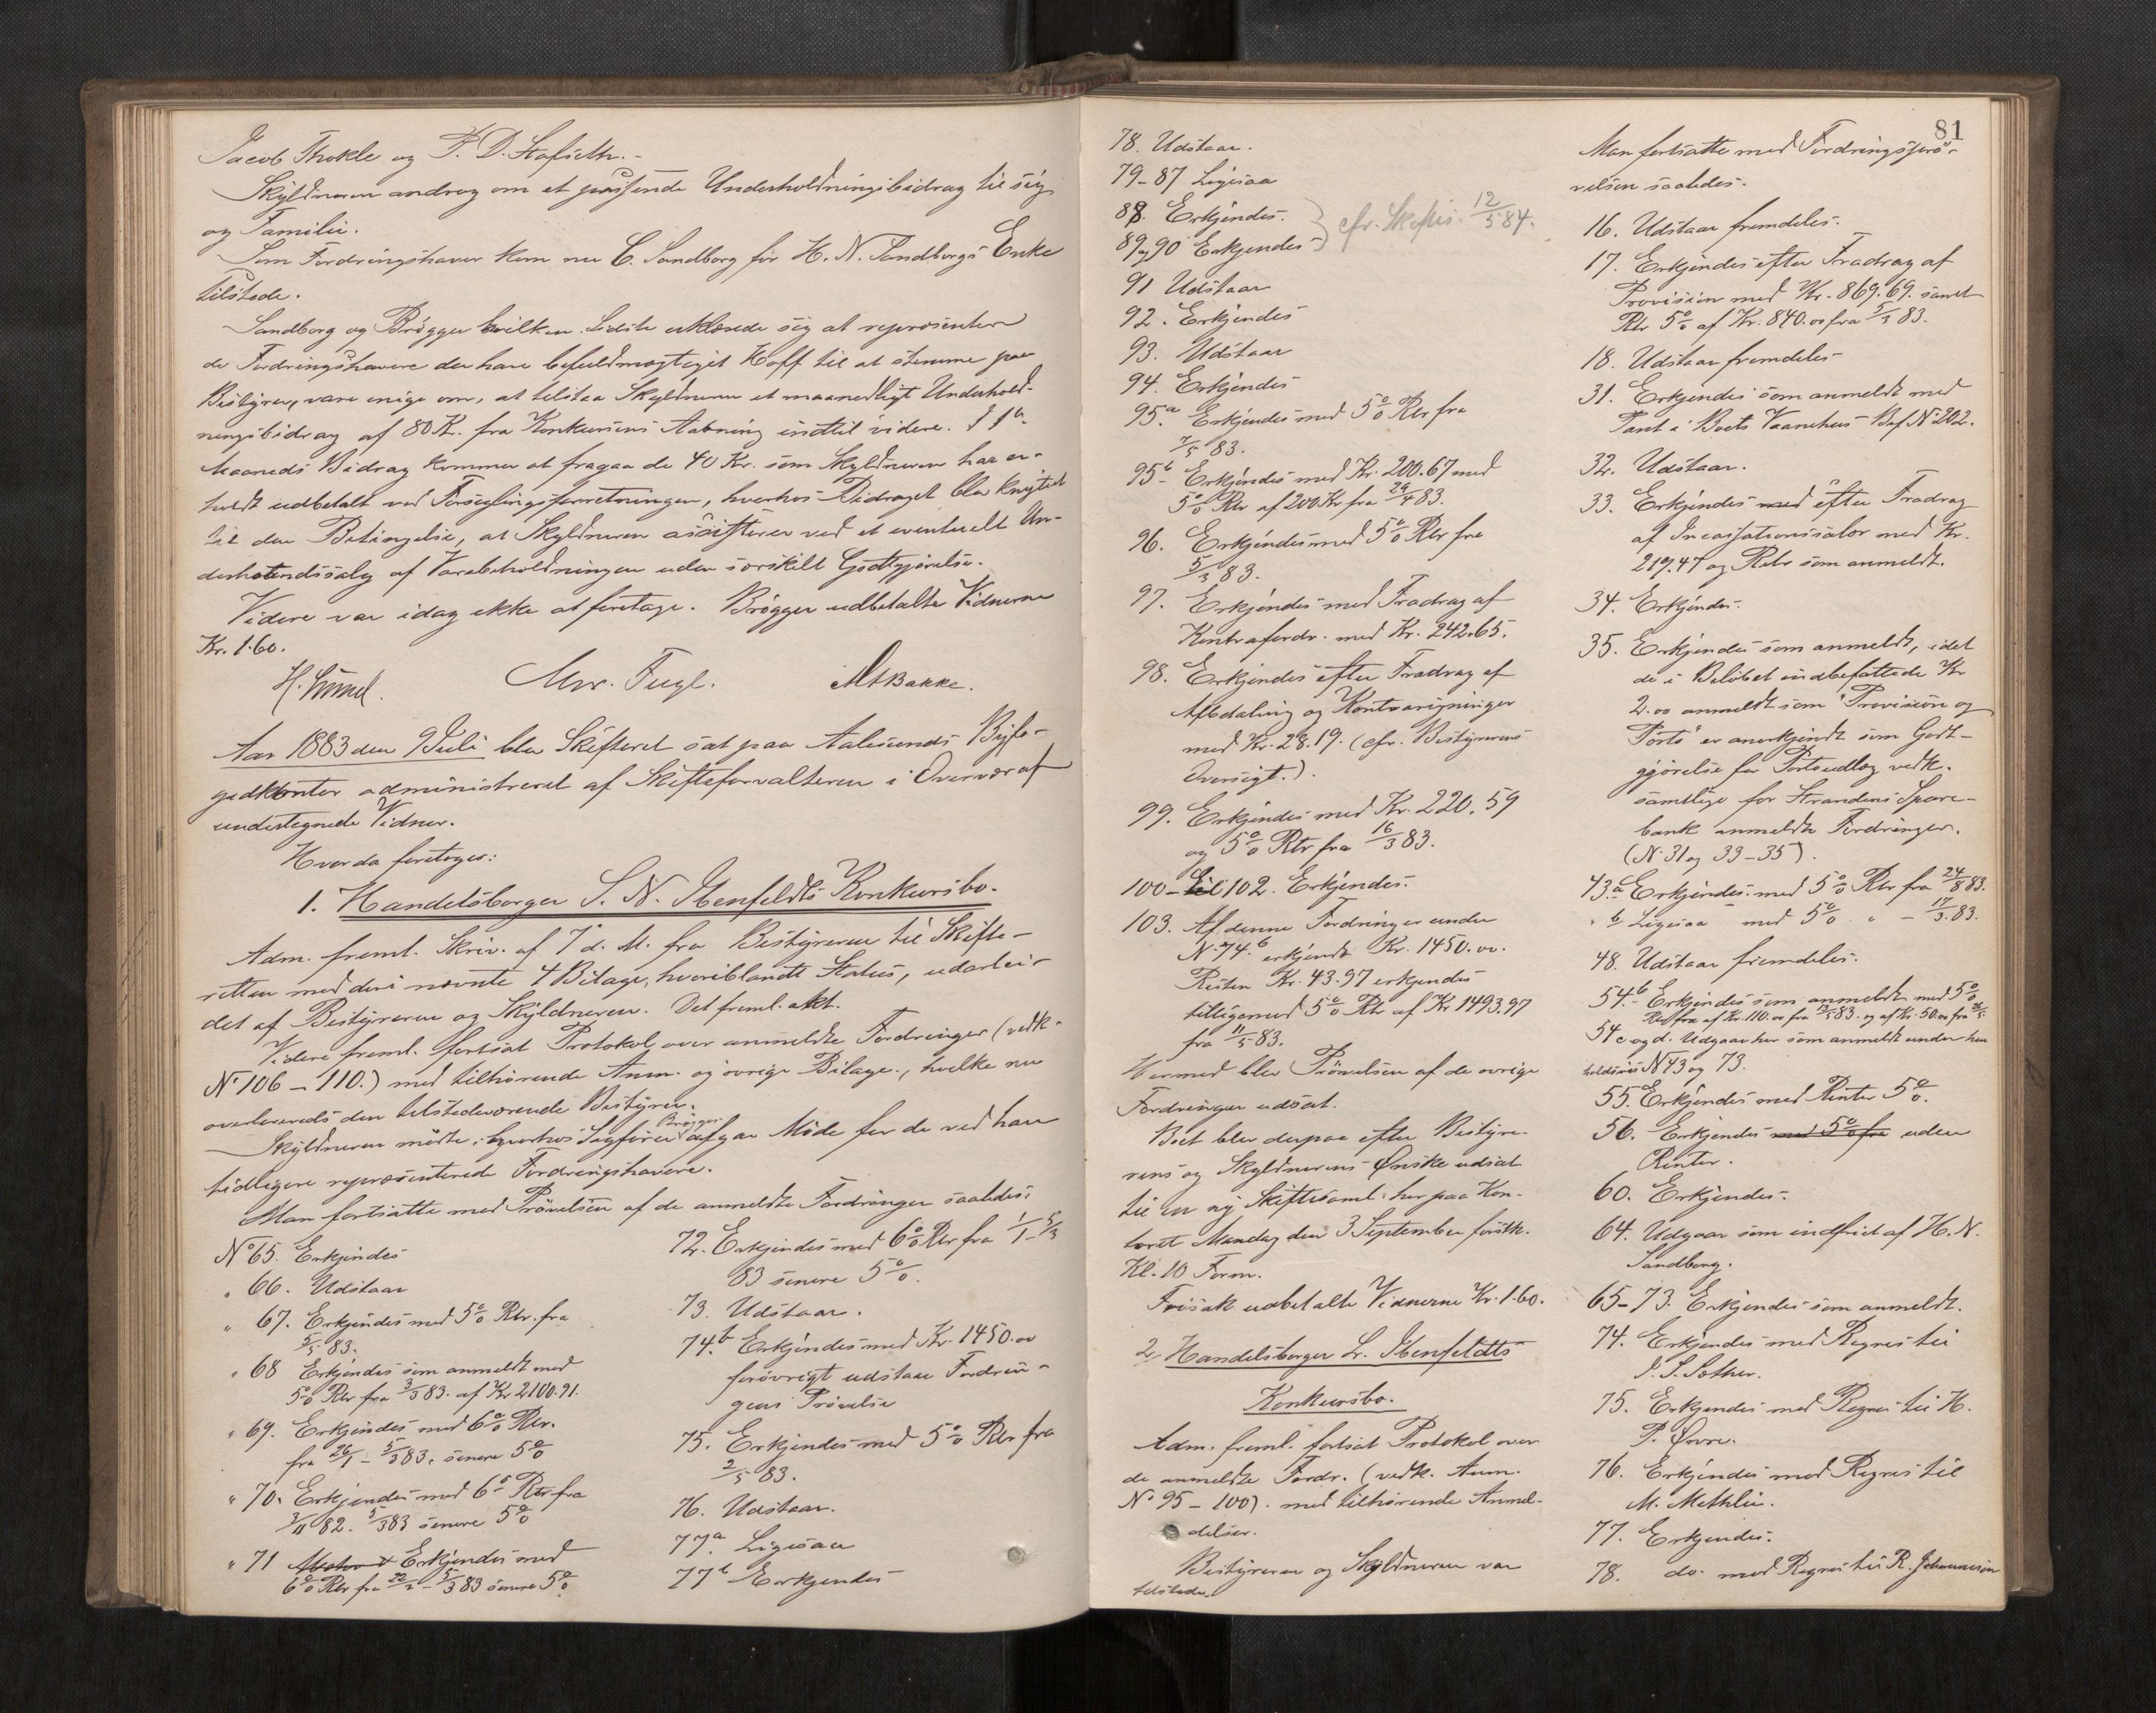 Jacob Thokle og P. D. Stafseth.-
Skyldneren androg om et passende Underholdningsbidrag til sig
og Familie.
Som Fordringshaver kom nu C. Sandborg for H. N. Sandborgs Enke
tilstede.
Sandborg og Brøgger hvilken Sidste erklærede sig at repræsentere
de Fordringshavere der have befuldmægtiget Hoff til at stemme paa
Bestyrer, vare enige om, at tilstaa Skyldneren et maanedligt Underhold-
ningsbidrag af 80 Kr. fra Konkursens Aabning indtil videre. I 1ste
Maaneds Bidrag kommer at fragaa de 40 Kr. som Skyldneren har er-
holdt udbetalt ved Forseglingsforretningen, hvorhos Bidraget blev knyttet
til den Betingelse, at Skyldneren assisterer ved et eventuelt Un-
derhaandssalg af Varebeholdningen uden særskilt Godtgjørelse.
Videre var idag ikke at foretage. Brøgger udbetalte Vidnerne
Kr. 1.60.
Mor. Fugl. Bakke.
Aar 1883 den 9 Juli blev Skifteret sat paa Aalesunds Byfo-
gedkontor administreret af Skifteforvalteren i Overvær af
undertegnede Vidner.
Hvorda foretoges:
1. Handelsborger S. N. Ibenfeldts Konkursbo.
Adm. freml. Skriv. af 7 d. M. fra Bestyreren til Skifte-
retten med deri nævnte 4 Bilage, hvoriblandt Status, udarbei-
det af Bestyreren og Skyldneren. Det freml. akt.
Videre freml. fortsat Protokol over anmeldte Fordringer (vedk.
No 106 - 110.) med tilhørende Anm. og øvrige Bilage, hvilke nu
overleveredes den tilstedeværende Bestyrer.
Skyldneren mødte, hvorhos Sagfører Brøgger afgav Møde for de ved ham
tidligere repræsenterede Fordringshavere.
Man fortsatte med Prøvelsen af de anmeldte Fordringer saaledes:
No 65. Erkjendes
" 66. Udstaar
" 67. Erkjendes med 5% Rtr. fra
5/5 83.
" 68 Erkjendes som anmeldt med
5% Rtr fra 3/5 83. af Kr 2100.91.
" 69. Erkjendes med 6% Rtr.
fra 26/1 - 5/3 83. senere 5%
" 70. Erkjendes med 6% Rtr fra
3/11 82. 5/3 83 senere 5%
" 71 Erkjendes med
6% Rtr fra 22/2 - 5/3 83 senere 5%
72. Erkjendes med 6% Rtr fra 1/1 - 5/3
83 senere 5%.
73. Udstaar.
74.b Erkjendes med Kr. 1450.00
forøvrigt udstaar Fordrin-
gens Prøvelse
75. Erkjendes med 5% Rtr fra
2/5 83.
76. Udstaar.
77a. Ligesaa
77b Erkjendes
81
78. Udstaar.
79-87 Ligesaa
88. Erkjendes.
89 og 90 Erkjendes } cfr. Skiftes. 12/5 84.
91 Udstaar
92. Erkjendes
93. Udstaar
94. Erkjendes
95a Erkjendes med 5% Rtr fra
7/5 83.
95b Erkjendes med Kr. 200.67 med
5% Rtr af 200 Kr fra 29/4 83.
96. Erkjendes med 5% Rtr fra
5/3 83.
97. Erkjendes med Fradrag af
Kontrafordr. med Kr. 242.65.
98. Erkjendes efter Fradrag af
Afbetaling og Kontraregninger
med Kr. 28.19. (cfr. Bestyrerens
Oversigt.).
99. Erkjendes med Kr. 220.59
og 5% Rtr fra 16/3 83.
100 - til 102. Erkjendes.
103. Af denne Fordring er under
No 74.b erkjendt Kr. 1450.00.
Resten Kr. 43.97 erkjendes
tilligemed 5% Rtr af Kr 1493.97
fra 11/5 83.
Hermed blev Prøvelsen af de øvrige
Fordringer udsat.
Boet blev derpaa efter Bestyre-
rens og Skyldnerens Ønske udsat
til en ny Skiftesaml. her paa Kon-
toret Mandag den 3 September førstk.
Kl. 10 Form.
Frisak udbetalte Vidnerne Kr. 1.60.
2, Handelsborger L. Ibenfeldts
Konkursbo.
Adm. freml. fortsat Protokol over
de anmeldte Fordr. (vedk. Anm.
No 95 - 100). med tilhørende Anmel-
delser.
Bestyreren og Skyldneren var
tilstede.
Man fortsatte med Fordringsprø-
velsen saaledes.
16. Udstaar fremdeles.
17. Erkjendes efter Fradrag af
Provision med Kr. 869.69. samt
Rtr 5% af Kr. 840.00 fra 5/3 83.
18. Udstaar fremdeles
31. Erkjendes som anmeldt med
Pant i Boets Vaanehus Bef No 202.
32. Udstaar.
33. Erkjendes med efter Fradrag
af Incassationssalær med Kr.
219.47 og Rtr som anmeldt.
34. Erkjendes.
35. Erkjendes som anmeldt, idet
de i Beløbet indbefattede Kr
2.00 anmeldt som "Provision og
Porto" er anerkjendt som Godt-
gjørelse for Portoudlæg vedk.
samtlige for Strandens Spare-
bank anmeldte Fordringer.
(No 31 og 33-35).
43.a Erkjendes med 5% Rtr fra 24/8 83.
" b Ligesaa med 5% " - 17/3.83.
48. Udstaar fremdeles.
54.b Erkjendes som anmeldt med 5%
Rtr fra af Kr. 110.00 fra 13/5 83. og af Kr. 50.00 fra 26/5
54 c og d. Udgaar her som anmeldt under hen
holdsvis No 43 og 73.
55. Erkjendes med Renter 5%.
56. Erkjendes med 5% fra uden
Renter.
60. Erkjendes.
64. Udgaar som indfriet af H. N.
Sandborg.
65-73. Erkjendes som anmeldt.
74. Erkjendes med Regres til
Sother.
75. Erkjendes med Regres til H.
P. Øvre.
76. Erkjendes med Regres til
M. Methlie.
77. Erkjendes.
78. do. med Regres til R. Johannesen